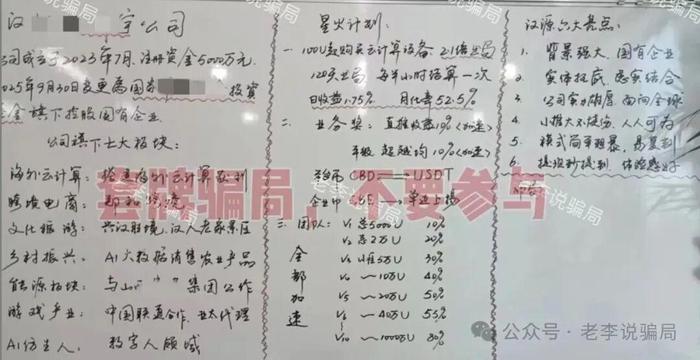 汉 宇公司
公司成立于2023年7月,注册资金5000万元
2025年9月30日变更为国 投资
旗下控股国有企业
公司旗下七大板块:
海外云计算: 搭建海外云计算盈利
跨境电商:
文化旅游: 兴汉胜境,汉人老家景区
乡村振兴: AI大数据销售农业产品
能源板块: 与山 集团合作
游戏产业: 中国联通合作,亚太代理
AI仿生人: 数字人领域
星火计划:
一、100U起购买云计算设备 2.1倍出局
120天出局 每半小时结算一次
日收益1.75% 月化率52.5%
二、业务奖: 直推收益10%(加速)
平级 超越均10%(加速)
CBD USDT
企业币
三、团队: V1 总5000U 10%
V2 总2万U 20%
V3 小推5万U 30%
V4 ~10万U 40%
V5 ~20万U 50%
V6 ~40万U 55%
V10 ~1000万U 80%
全部加速
汉源六大亮点:
1. 背景强大,国有企业
2. 实体托底,虚实结合
3. 公司实力雄厚,面向全球
4. 人人可为
5. 模式简单粗暴,易复制
6. 提现秒提秒到,体验感好
套牌骗局,不要参与
老李说骗局
老李说骗局
公众号·老李说骗局